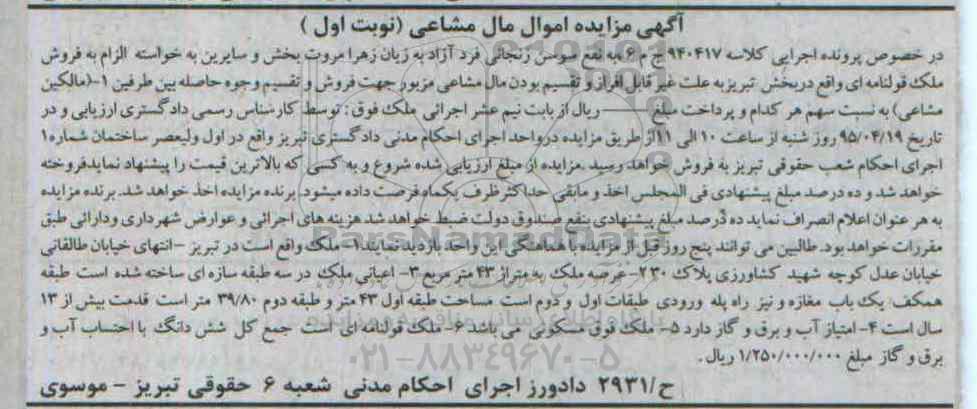 آگهی مزایده اموال مال مشاعی (نوبت اول)
در خصوص پرونده اجرایی کلاسه ۹۴۰۴۱۷ج م ۶ به نفع سوسن زنجانی فرد آزاد به زیان زهرا مروت بخش و سایرین به خواسته الزام به فروش
ملک قولنامه ای واقع در بخش تبریز به علت غیر قابل افراز و تقسیم بودن مال مشاعی مزبور جهت فروش و تقسیم وجوه حاصله بین طرفین ۱-(مالکین
مشاعی) به نسبت سهم هر کدام و پرداخت مبلغ ریال از بابت نیم عشر اجرائی ملک فوق : توسط کارشناس رسمی دادگستری ارزیابی و در
تاریخ ۹۵/۰۴/۱۹ روز شنبه از ساعت ۱۰ الی ۱۱ از طریق مزایده در واحد اجرای احکام مدنی دادگستری تبریز واقع در اول ولیعصر ساختمان شماره ۱
اجرای احکام شعب حقوقی تبریز به فروش خواهد رسید .مزایده از مبلغ ارزیابی شده شروع و به کسی که بالاترین قیمت را پیشنهاد نماید فروخته
خواهد شد و ده درصد مبلغ پیشنهادی فی المجلس اخذ و مابقی حداکثر ظرف یکماه فرصت داده میشود. برنده مزایده اخذ خواهد شد. برنده مزایده
به هر عنوان اعلام انصراف نماید ده درصد مبلغ پیشنهادی بنفع صندوق دولت ضبط خواهد شد هزینه های اجرائی و عوارض شهرداری و دارائی طبق
مقررات خواهد بود. طالبین می توانند پنج روز قبل از مزایده با هماهنگی این واحد بازدید نمایند ۱- ملک واقع است در تبریز -انتهای خیابان طالقانی
خیابان عدل کوچه شهید کشاورزی پلاک ۲۳۰- عرصه ملک به متراژ ۴۳ متر مربع ۳- اعیانی ملک در سه طبقه سازه ای ساخته شده است طبقه
همکف یک باب مغازه و نیز راه پله ورودی طبقات اول و دوم است مساحت طبقه اول ۴۳ متر و طبقه دوم ۳۹/۸۰ متر است قدمت بیش از ۱۳
سال است ۴- امتیاز آب و برق و گاز دارد ۵- ملک فوق مسکونی می باشد ۶- ملک قولنامه ای است جمع کل شش دانگ با احتساب آب و
برق و گاز مبلغ ۱/۲۵۰/۰۰۰/۰۰۰ ریال .
ح/۲۹۳۱ دادورز اجرای احکام مدنی شعبه ۶ حقوقی تبریز - موسوی
ParsNamadData
۰۲۱-۸۸۳۴۹۶۷۰-۵